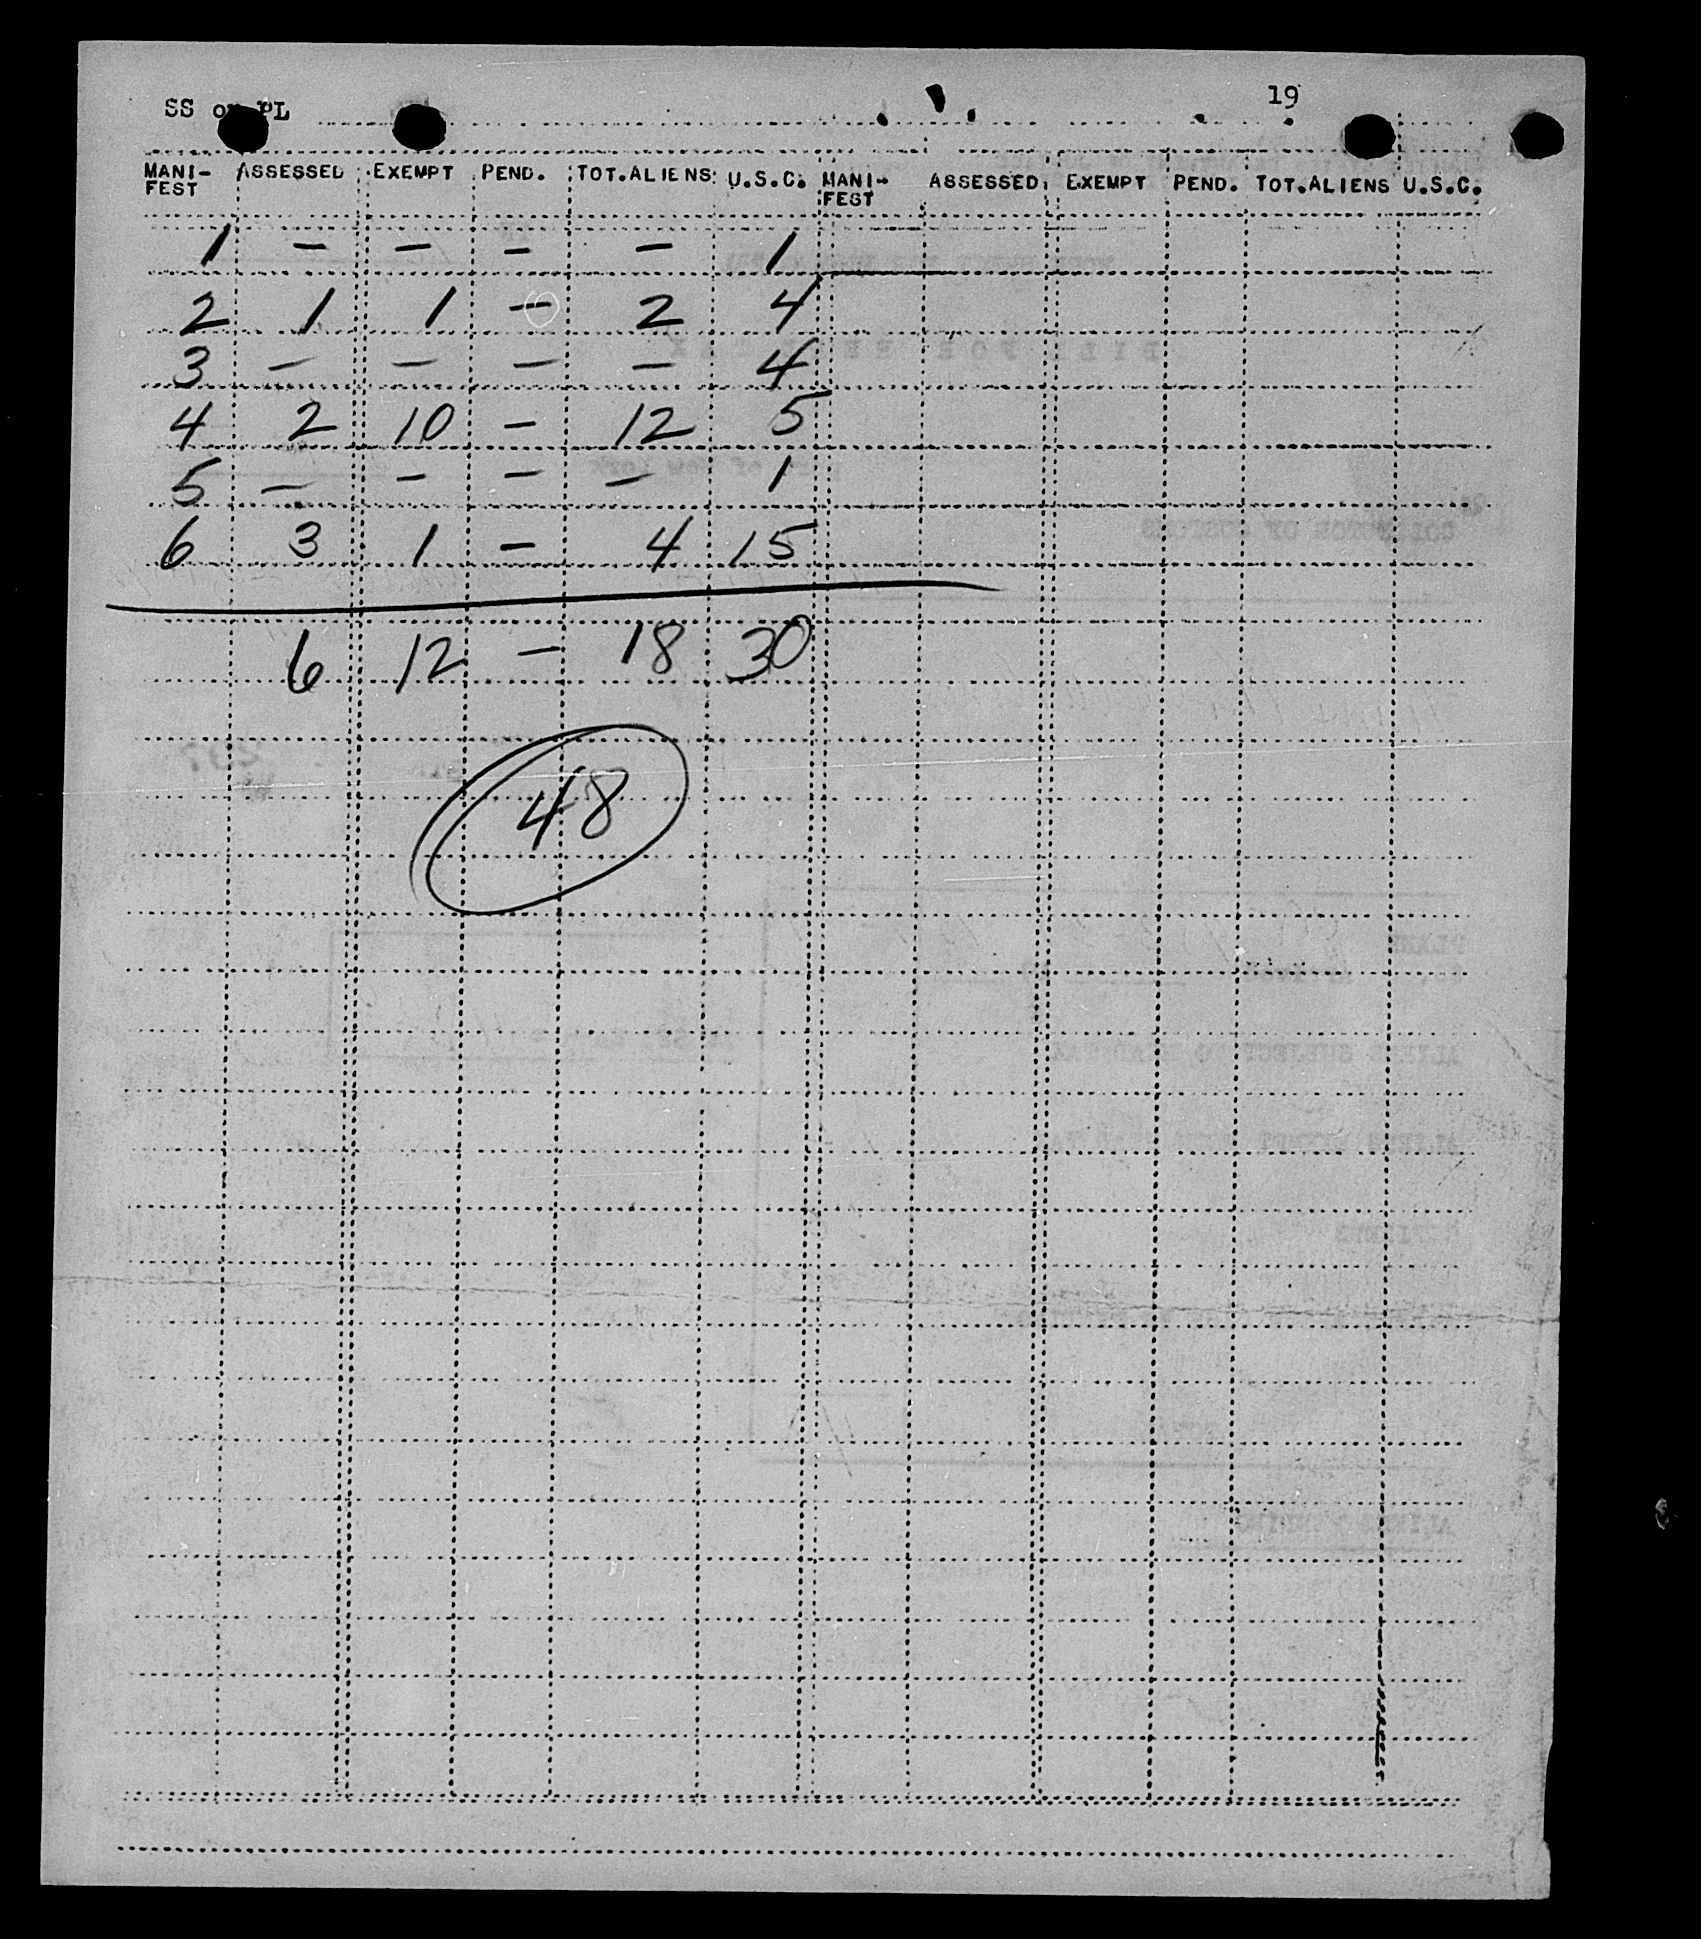 SS or PL 19
MANI-FEST ASSESSED EXEMPT PEND. TOT.ALIENS U.S.C. MANI-FEST ASSESSED EXEMPT PEND. TOT.ALIENS U.S.C.
1 – – – – 1
2 1 1 – 2 4
3 – – – – 4
4 2 10 – 12 5
5 – – – – 1
6 3 1 – 4 15
6 12 – 18 30
48